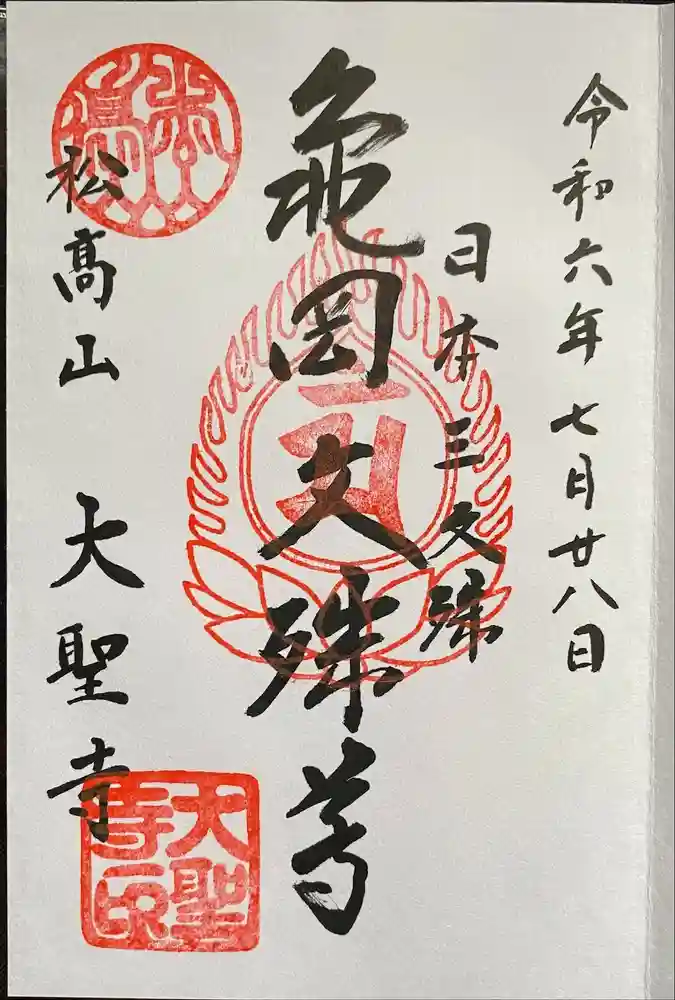 令和六年七月廿八日
日本三文殊
亀岡文殊尊
松高山 大聖寺
松高
大聖寺印